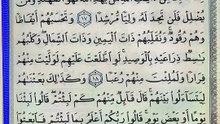 يُضْلِلْ فَلَن تَجِدَ لَهُۥ وَلِيًّا مُّرْشِدًا ١٧ وَتَحْسَبُهُمْ أَيْقَاظًا
وَهُمْ رُقُودٌ وَنُقَلِّبُهُمْ ذَاتَ ٱلْيَمِينِ وَذَاتَ ٱلشِّمَالِ وَكَلْبُهُم
بَٰسِطٌ ذِرَاعَيْهِ بِٱلْوَصِيدِ لَوِ ٱطَّلَعْتَ عَلَيْهِمْ لَوَلَّيْتَ مِنْهُمْ
فِرَارًا وَلَمُلِئْتَ مِنْهُمْ رُعْبًا ١٨ وَكَذَٰلِكَ بَعَثْنَٰهُمْ
لِيَتَسَآءَلُوا۟ بَيْنَهُمْ قَالَ قَآئِلٌ مِّنْهُمْ كَمْ لَبِثْتُمْ قَالُوا۟ لَبِثْنَا
يَوْمًا أَوْ بَعْضَ يَوْمٍ قَالُوا۟ رَبُّكُمْ أَعْلَمُ بِمَا لَبِثْتُمْ فَٱبْعَثُوٓا۟